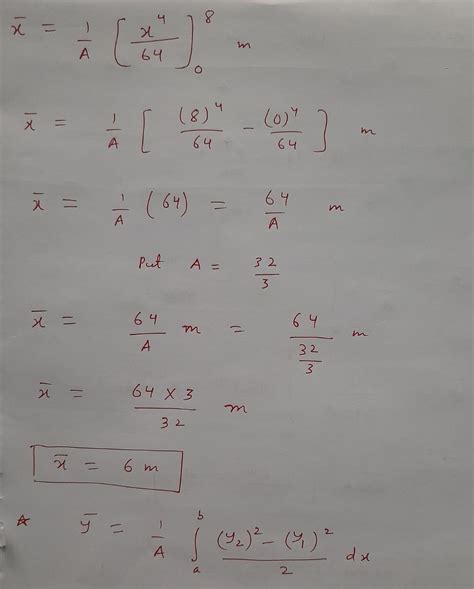 x̄ = 1/A [ x⁴/64 ]₀⁸ m
x̄ = 1/A [ (8)⁴/64 - (0)⁴/64 ] m
x̄ = 1/A (64) = 64/A m
Put A = 32/3
x̄ = 64/A m = 64/(32/3) m
x̄ = 64 × 3/32 m
x̄ = 6 m
☆ ȳ = 1/A ∫ₐᵇ (y₂)² - (y₁)²/2 dx